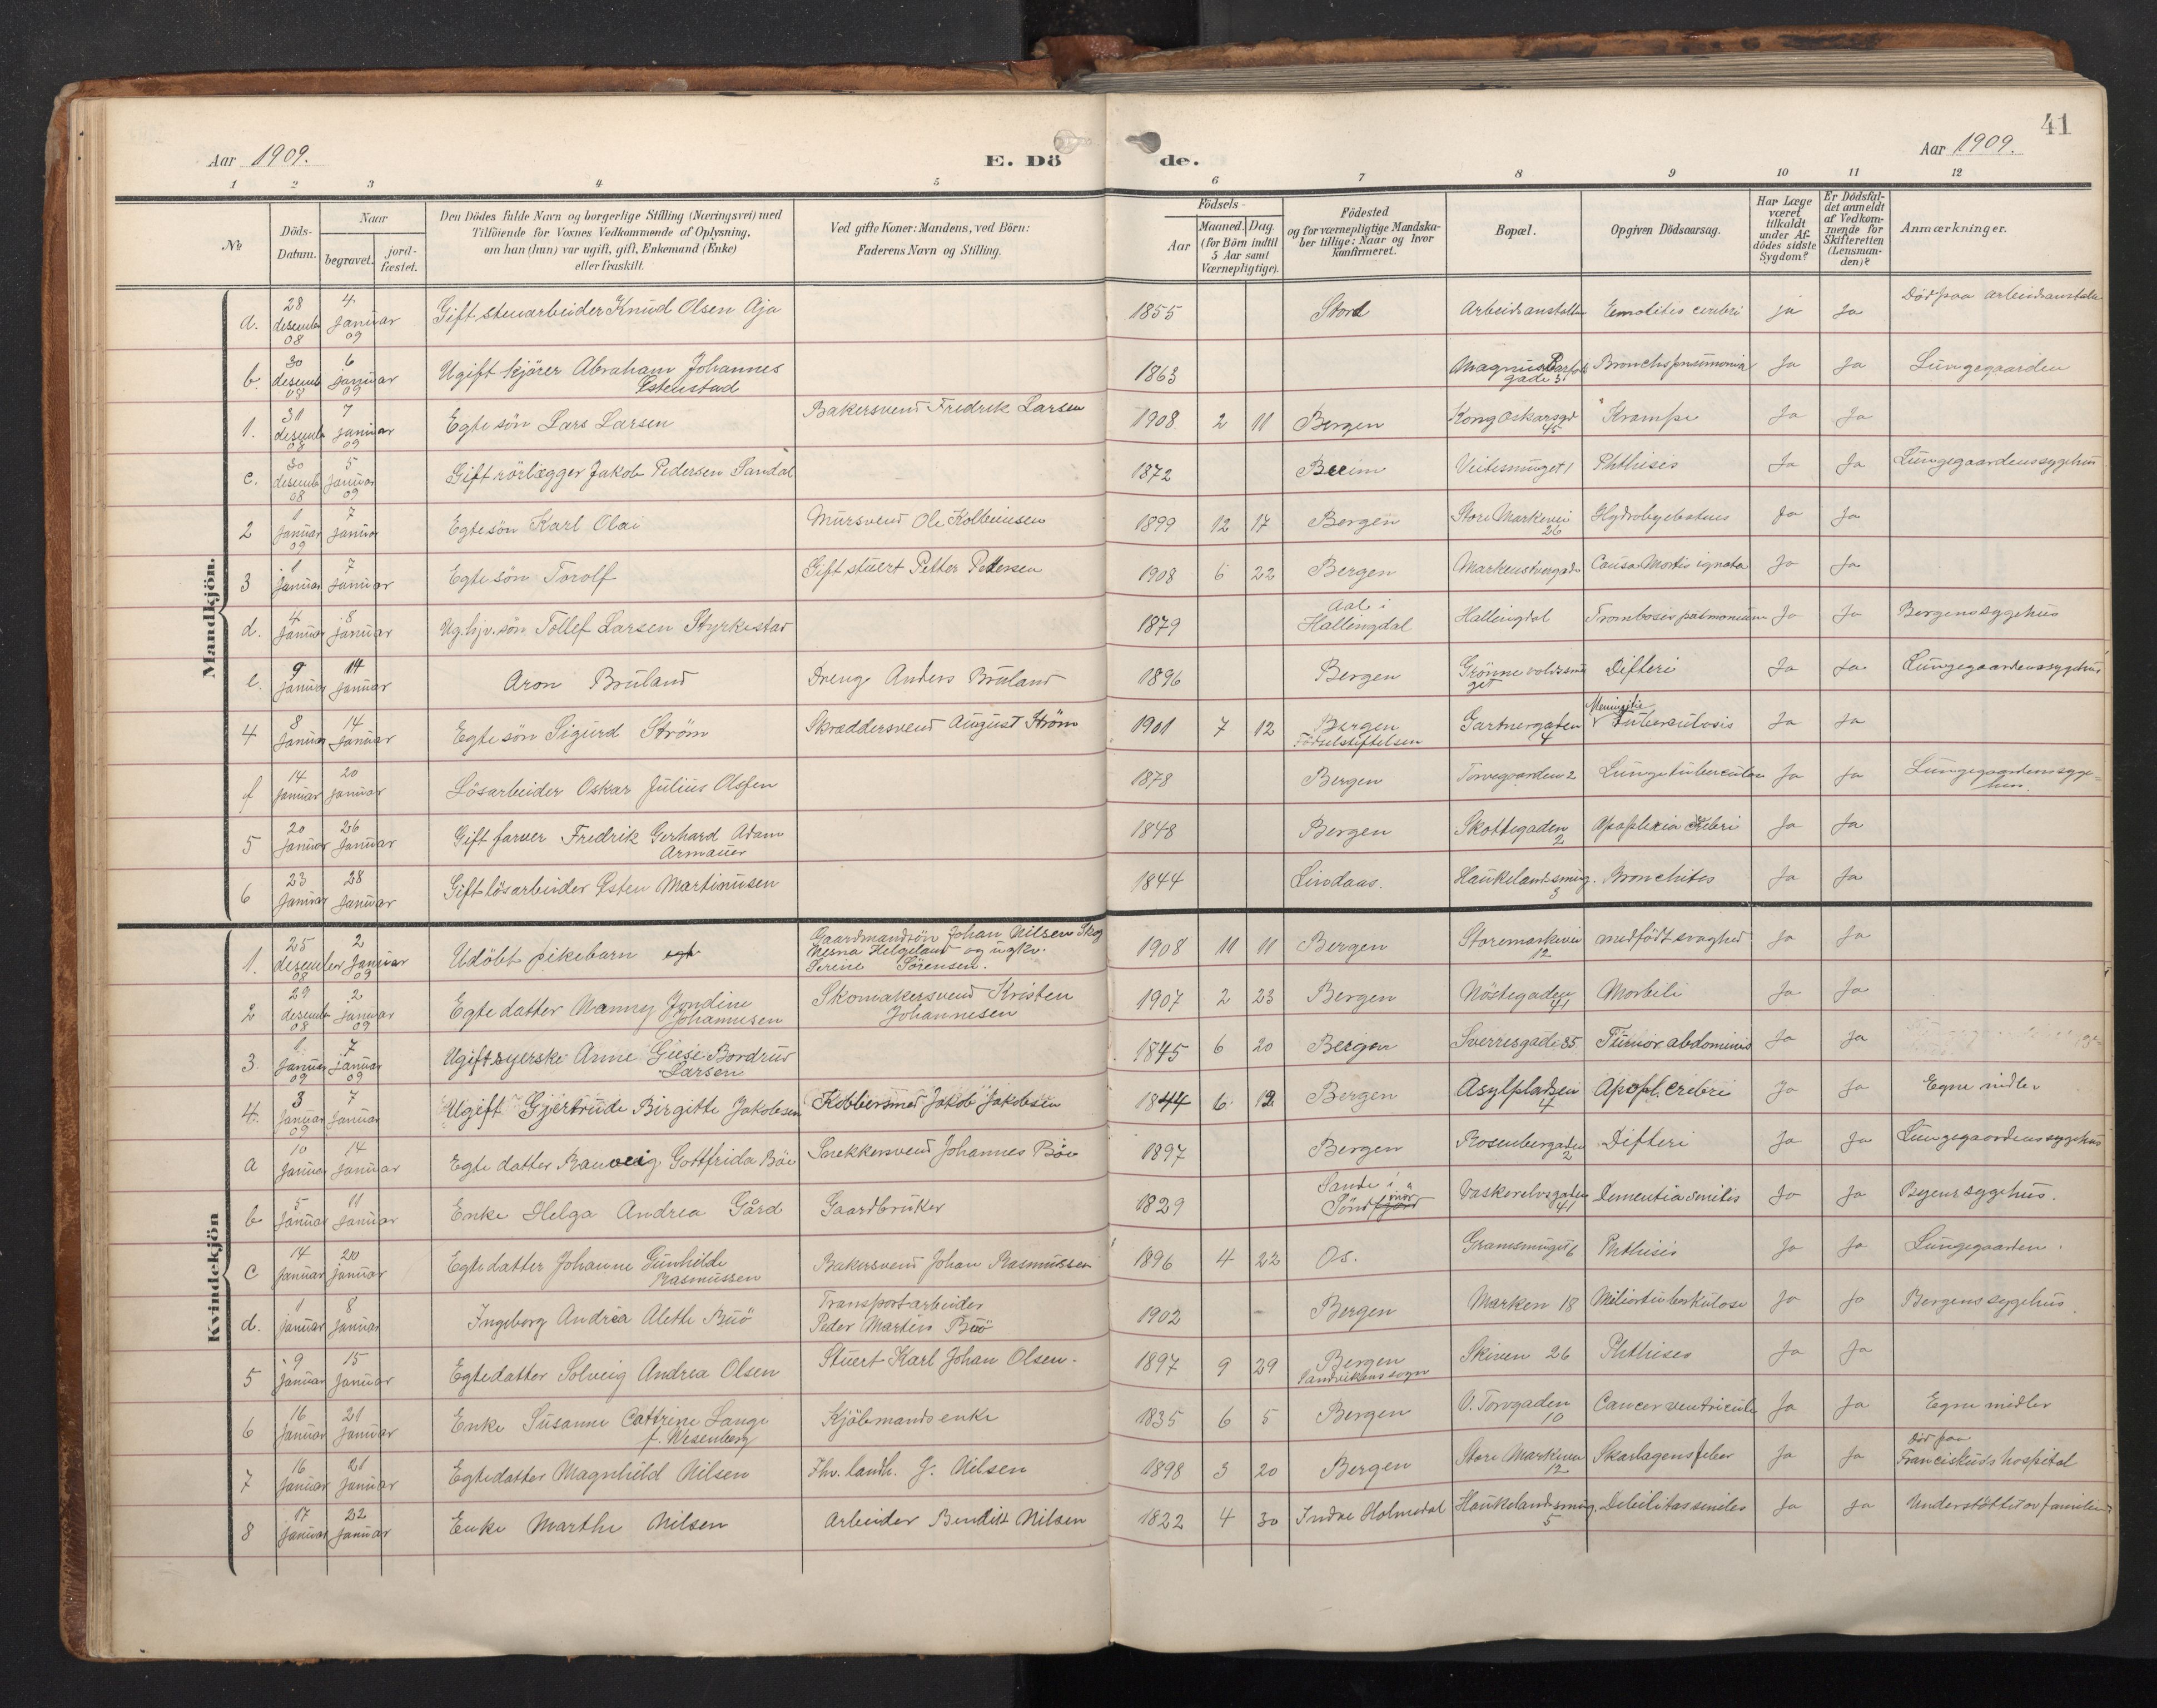 41
Aar 1909.
E. Döde.
Aar 1909.
1 2 3 4 5 6 7 8 9 10 11 12
№
Döds-Datum.
Naar
begravet.
jord-fæstet.
Den Dödes fulde Navn og borgerlige Stilling (Næringsvei) med
Tilföiende for Voxnes Vedkommende af Oplysning,
om han (hun) var ugift, gift, Enkemand (Enke)
eller fraskilt.
Ved gifte Koner: Mandens, ved Börn:
Faderens Navn og Stilling.
Födsels-
Aar
Maaned. Dag.
(for Börn indtil
5 Aar samt
Værnepligtige).
Födested
og for værnepligtige Mandska-
ber tillige: Naar og hvor
konfirmeret.
Bopæl.
Opgiven Dödsaarsag.
Har Læge
været
tilkaldt
under Af-
dödes sidste
Sygdom?
Er Dödsfal-
det anmeldt
af Vedkom-
mende for
Skifteretten
(Lensman-
den)?
Anmærkninger.
Mandkjön.
a. 28 desemb 08 4 Januar 09 Gift stenarbeider Knud Olsen Aja 1855 Stord Arbeidsanstalten cerebri ja Ja Död paa arbeidsanstalten
b. 30 desemb 08 6 januar 09 Ugift kjörer Abraham Johannes Estenstad 1863 Magnus Barfots gade 31 Bronchopneumonia Ja Ja Lungegaarden
1. 31 desemb 08 7 januar 09 Egte sön Lars Larsen Bakersvend Fredrik Larsen 1908 2 11 Bergen Kong Oskarsgd 45 Krampe Ja Ja
c. 30 desemb 08 5 januar 09 Gift rörlægger Jakob Pedersen Sandal 1872 Breim 1 Phthisis Ja Ja Lungegaardenssygehus
2 1 Januar 09 7 Januar Egte sön Karl Olai Mursvend Ole Kolbeinsen 1899 12 17 Bergen Store Markevei 26 Ja Ja
3 1 Januar 7 Januar Egte sön Torolf Gift stuert Petter Pedersen 1908 6 22 Bergen Causa Mortis ignota Ja Ja
d. 4 Januar 8 Januar Ug. hjv. sön Tollef Larsen Styrkestad 1879 Aal i Hallingdal Hallingdal Ja Ja Bergens sygehus
e. 9 januar 14 Januar Aron Bruland Dreng Anders Bruland 1896 Bergen Grönnevoldssmuget Difteri Ja Ja Lungegaardenssygehus
4 8 Januar 14 Januar Egte sön Sigurd Ström Skræddersvend August Ström 1901 7 12 Bergen Födselstiftelsen Gartnergaten 4 Meningitis Tuberculosis Ja Ja
f 14 Januar 20 Januar Lösarbeider Oskar Julius Olsen 1878 Bergen Torvegaarden 2 Ja Ja Lungegaardenssygehus.
5 20 Januar 26 Januar Gift farver Fredrik Gerhard Adam Armauer 1848 Bergen Skottegaden 2 Apoplexia Ja Ja
6 23 Januar 28 Januar Gift lösarbeider Esten Martinusen 1844 Lindaas. Haukelandsmug. 3 Bronchitis Ja Ja
Kvindekjön
1. 25 desember 08 2 Januar 09 Udöbt pikebarn egt Gaardmandsön Johan Nilsen Skog Nesna Helgeland og ugkv. Serine Sörensen. 1908 11 11 Bergen Storemarkevei 12 medfödt svaghed Ja Ja
2 29 desemb 08 2 januar 09 Egte datter Nanny Jondine Johannesen Skomakersvend Kristen Johannesen 1907 2 23 Bergen Nöstegaden 41 Morbili Ja Ja
3. 1 Januar 09 7 Januar 09 Ugift syerske Anne Giese Bordrup Larsen 1845 6 20 Bergen Sverresgade 35 Tumor abdominis Ja Ja
4. 3 Januar 09 7 Januar Ugift Gjertrude Birgitte Jakobsen Kobbersmed Jakob Jakobsen 1844 6 12 Bergen Asylpladsen 4 Apopl. Cerebri Ja Ja Egne midler
a 10 Januar 14 Januar Egte datter Ranveig Gottfrida Böe Snekkersvend Johannes Böe 1897 Bergen Rosenbergaden 2 Difteri Ja Ja Lungegaardenssygehus
b 5 Januar 11 Januar Enke Helga Andrea Gård Gaardbruker 1829 Sande i Söndmör Vaskerelvsgaden 41 Dementia senilis Ja Ja Byens sygehus.
c 14 januar 20 januar Egte datter Johanne Gunhilde Rasmussen Bakersvend Johan Rasmussen 1896 4 22 Os. 6 Phthisis Ja Ja Lungegaarden.
d. 1 januar 8 Januar Ingeborg Andrea Alette Buö Transportarbeider Peder Martin Buö 1902 - Bergen Marken 18 Miliertuberkulose Ja Ja Bergens sygehus
5 9 Januar 15 Januar Egtedatter Solveig Andrea Olsen Stuert Karl Johan Olsen. 1897 9 29 Bergen Sandvikens sogn Skiven 26 Phthises Ja Ja
6 16 Januar 21 Januar Enke Susanne Cattrine Lange f. Wesenberg Kjöbmands enke 1835 6 5 Bergen V. Torvgaden 10 Cancer ventriculi Ja Ja Egne midler
7 16 Januar 21 Januar Egtedatter Magnhild Nilsen Fhv. landh. J. Nilsen 1898 3 20 Bergen Store Markevei 12 Skarlagensfeber Ja Ja Död paa Franciskuds hospital
8 17 Januar 22 Januar Enke Marthe Nilsen Arbeider Bendikt Nilsen 1822 4 30 Indre Holmedal Haukelandsmug. 5 Debilitas seniles Ja Ja Understöttet av familien